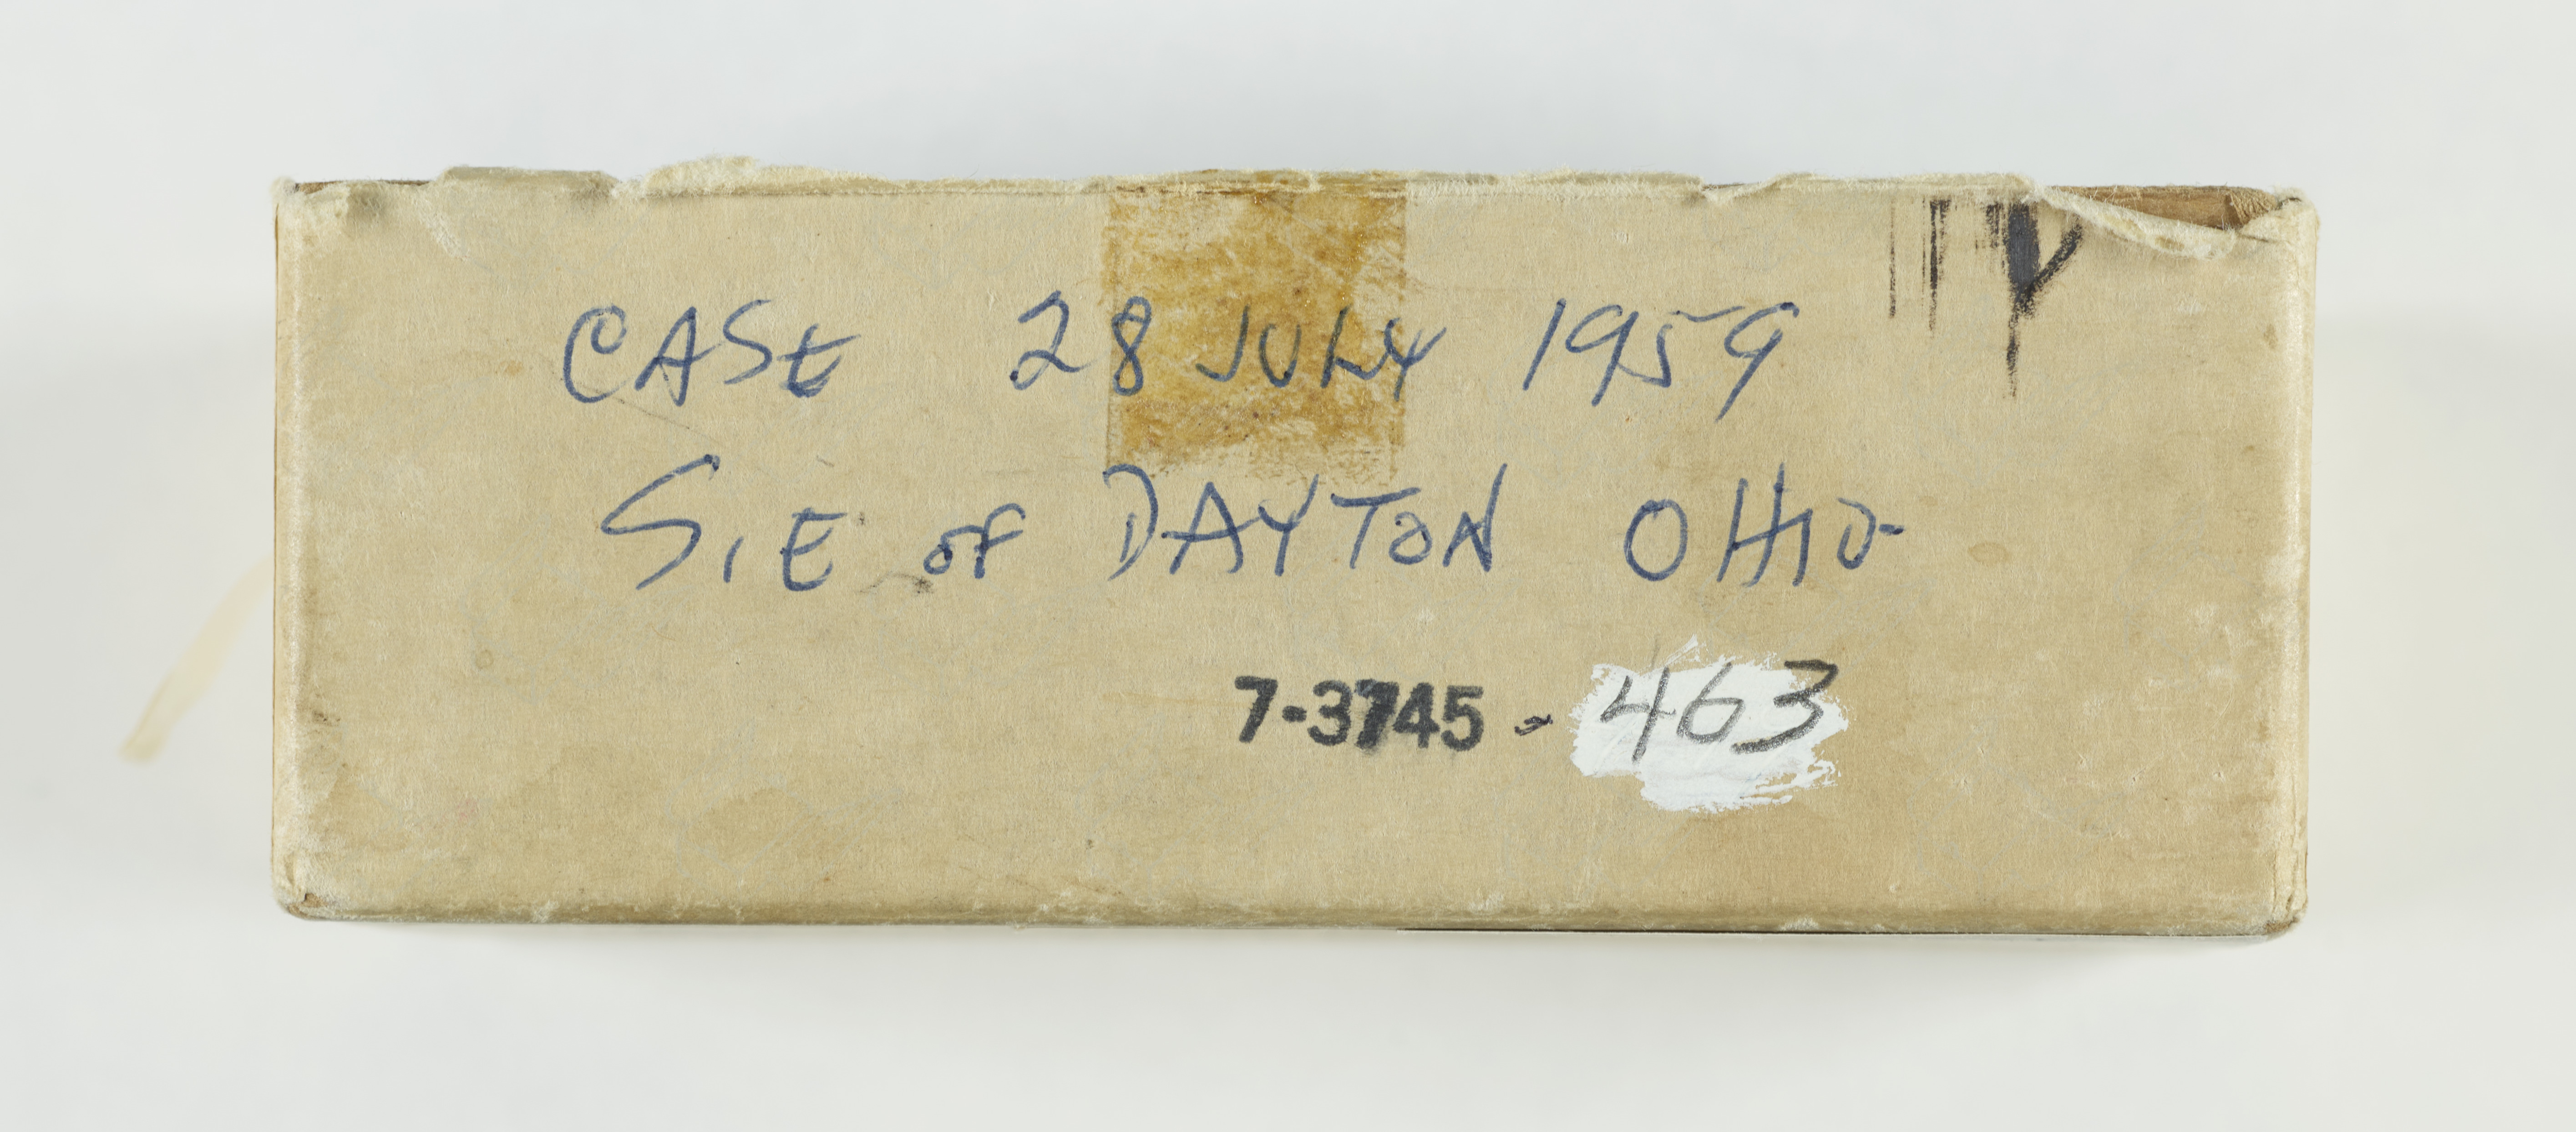 CASE 28 JULY 1959
S.E of DAYTON OHIO
7-3745 - 463